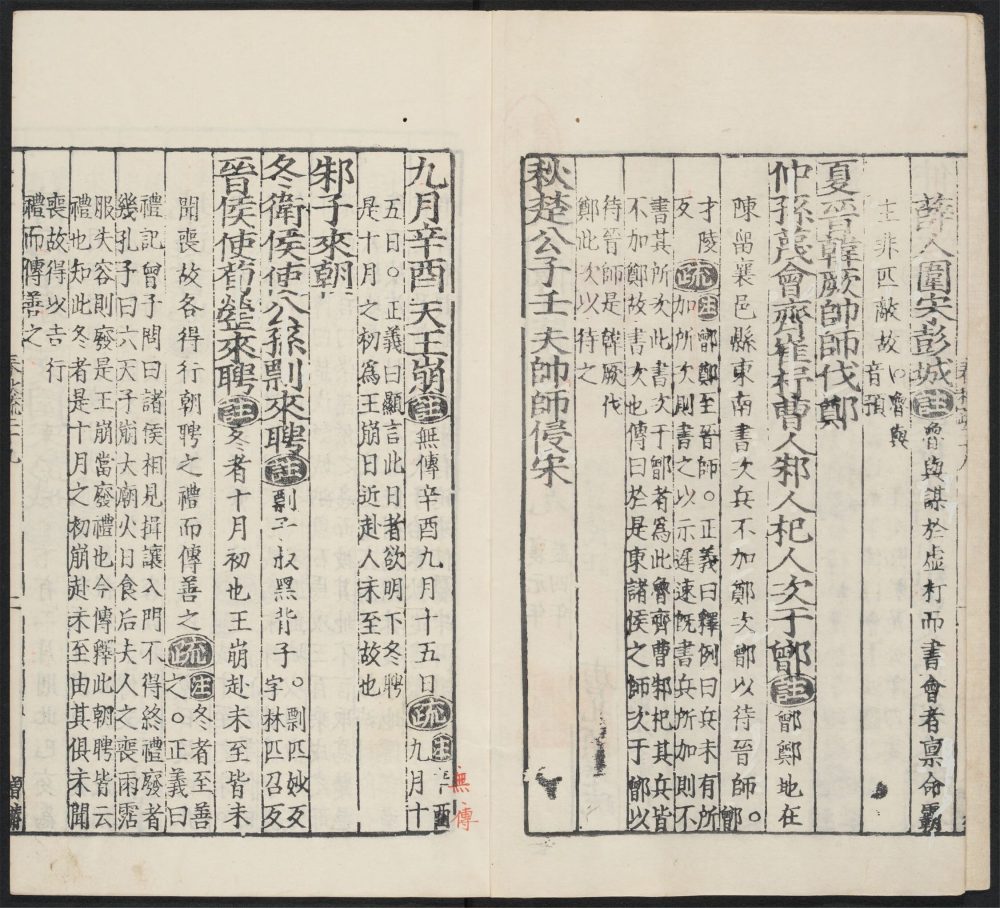 薛人圍宋彭城註魯與謀於虛朾而書會者稟命霸
主非匹敵故〇魯與音預
夏晉韓厥帥師伐鄭
仲孫蔑會齊崔杼曹人邾人杞人次于鄫註鄫鄭地在
陳留襄邑縣東南書次兵不加鄭次鄫以待晉師。鄫
才陵反疏注鄫鄭至晉師。正義曰釋例曰兵未有所
加所次則書之以示遲速既書兵所加則不
書其所次此書次于鄫者為此魯齊曹邾杞其兵皆
不加鄭故書次也傳曰於是東諸侯之師次于鄫以
待晉師是韓厥伐
鄭此次以待之
秋楚公子壬夫帥師侵宋
九月辛酉天王崩註無傳辛酉九月十五日疏注辛酉九月十
無傳
五日。正義曰顯言此日者欲明下冬聘
是十月之初為王崩日近赴人未至故也
邾子來朝
冬衛侯使公孫剽來聘註剽子叔黑背子。剽匹妙反字林匹召反
晉侯使荀罃來聘註冬者十月初也王崩赴未至皆未
聞喪故各得行朝聘之禮而傳善之疏注冬者至善之。正義曰
禮記曾子問曰諸侯相見揖讓入門不得終禮廢者
幾孔子曰六天子崩大廟火日食后夫人之喪雨霑
服失容則廢是王崩當廢禮也今傳釋此朝聘皆云
禮也知此冬者是十月之初崩赴未至由其俱未聞
喪故得以吉行
禮而傳善之